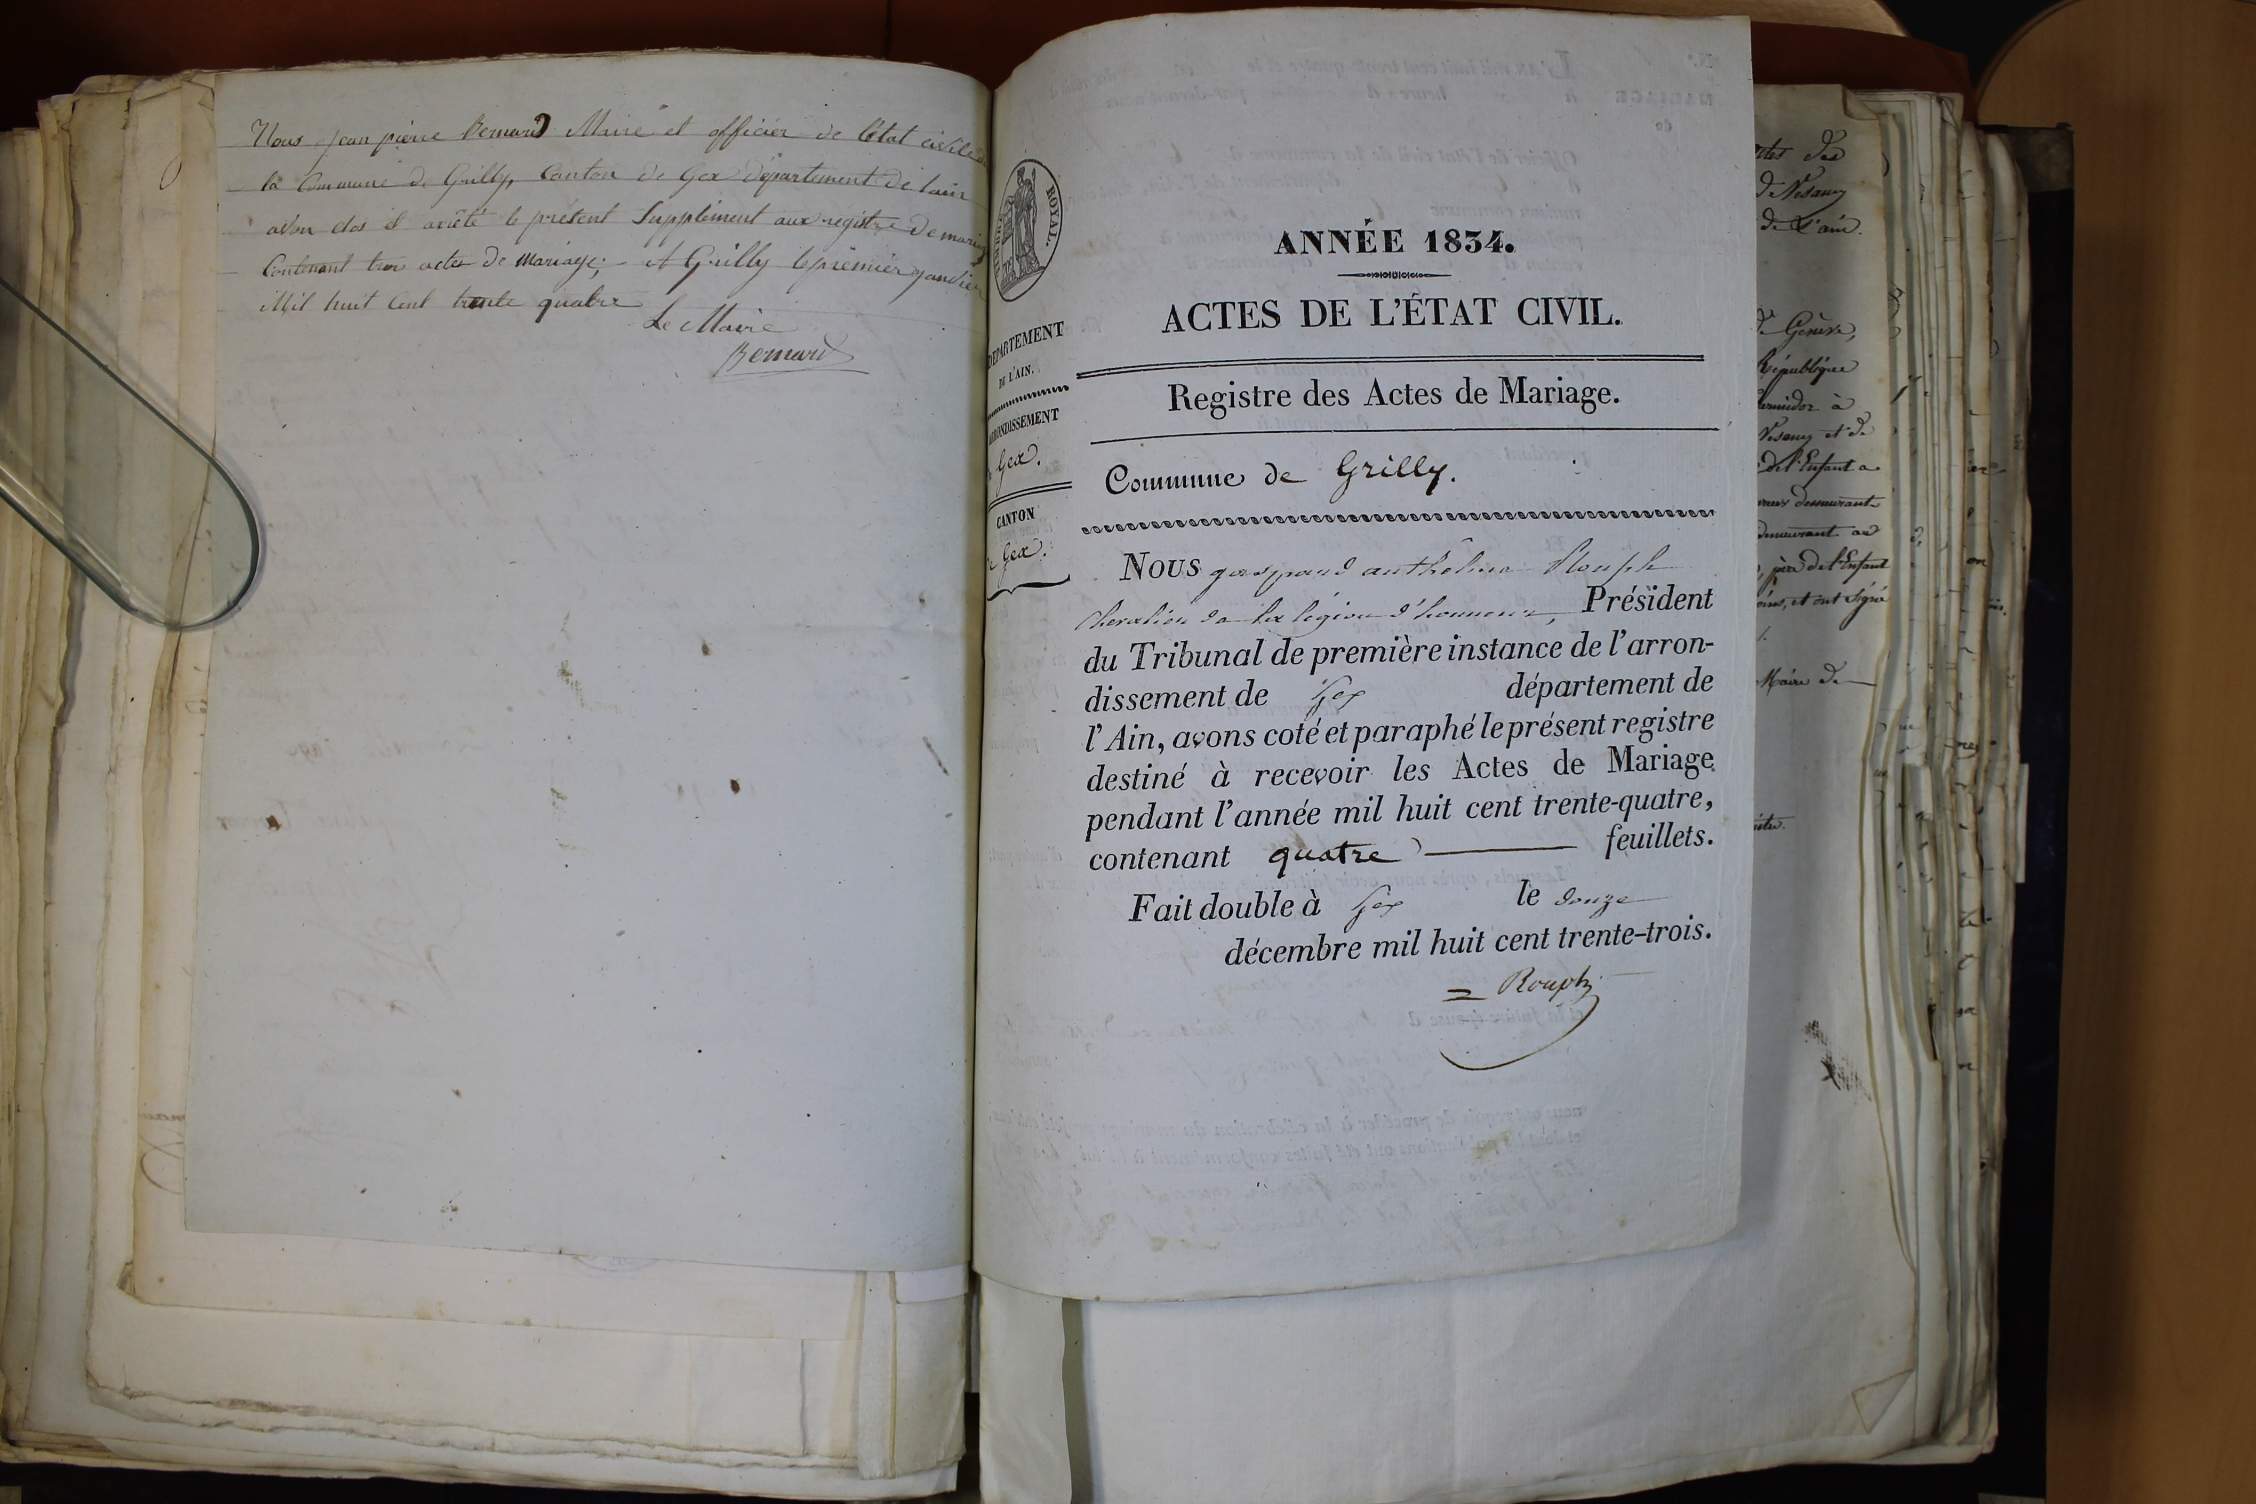 Nous Jean pierre Bernard Maire et officier de l'état civile de
la Commune de Grilly, Canton de Gex département de l'ain
avon clos et arrêté le présent Supplément aux registre de mariage
Contenant trois actes de mariage; A Grilly le premier janvier
Mil huit Cent trente quatre
Le Maire
Bernard
TIMBRE ROYAL.
DÉPARTEMENT
DE L'AIN.
ARRONDISSEMENT
Gex.
CANTON
de Gex.
ANNÉE 1834.
ACTES DE L'ÉTAT CIVIL.
Registre des Actes de Mariage.
Commune de Grilly.
Nous gaspard anthelme Rouph
Chevalier de la légion d'honneur, Président
du Tribunal de première instance de l'arron-
dissement de Gex département de
l'Ain, avons coté et paraphé le présent registre
destiné à recevoir les Actes de Mariage
pendant l'année mil huit cent trente-quatre,
contenant quatre feuillets.
Fait double à Gex le douze
décembre mil huit cent trente-trois.
Rouph
de Vesancy
de L'ain.
de Genève,
République
Thermidor à
Vesancy et de
de l'Enfant a
demeurant
demeurant au
père de l'Enfant
et ont Signé
Maire de